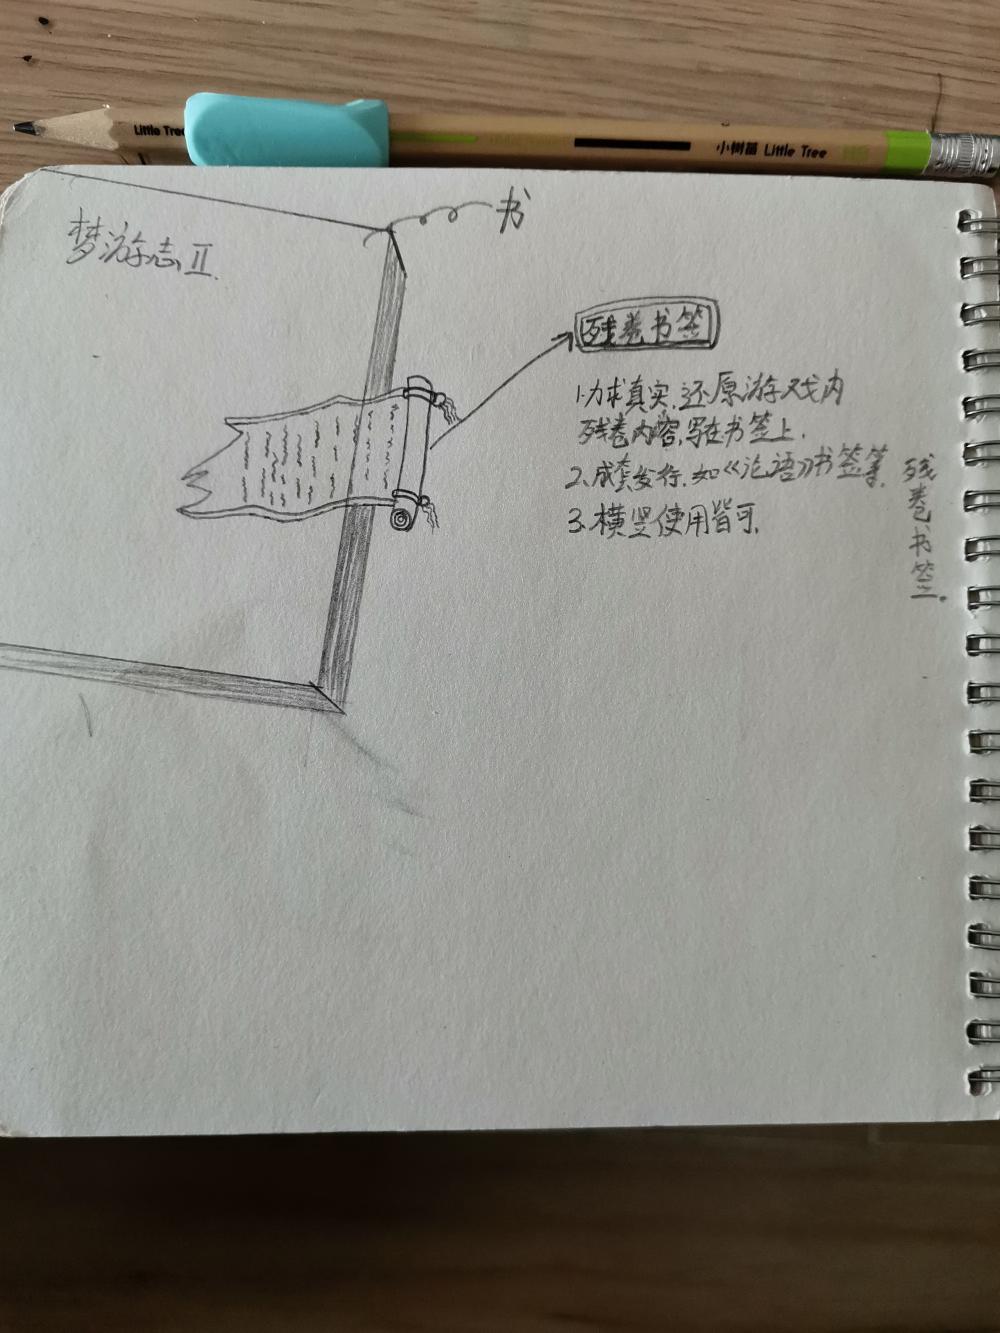 Little Tree
小树苗 Little Tree
书
梦游志Ⅱ
残卷书签
1.力求真实,还原游戏内
残卷内容,写在书签上.
2.成套发行,如《论语》书签等.
3.横竖使用皆可.
残卷书签.